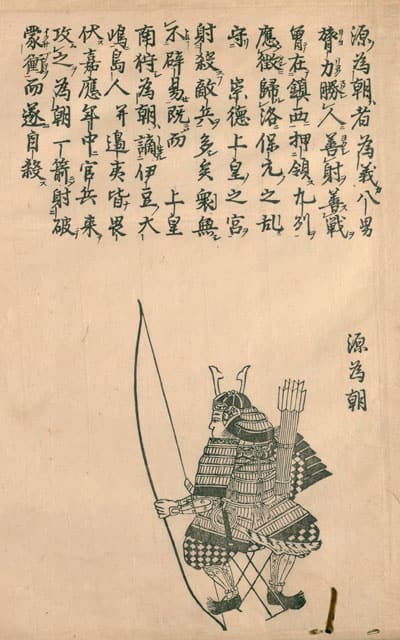 源為朝者為義八男
膂力勝人善射善戰
曾在鎮西押領九州
應徵歸洛保元之乱
守 崇德上皇之宮
射殺敵兵多矣衆無
不辟易既而 上皇
南狩為朝謫伊豆大
嶋島人并邊夷皆畏
伏嘉應年中官兵来
攻之為朝一箭射破
蒙衝而遂自殺
源為朝